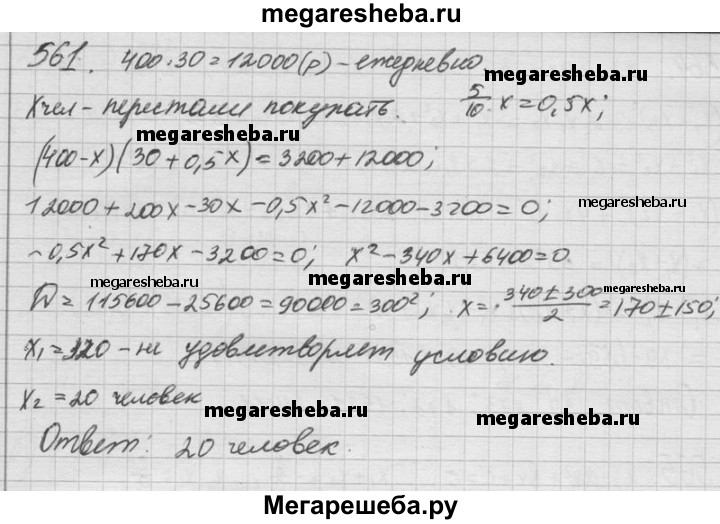 megaresheba.ru
561. 400·30=12000(р) – ежедневно
Xчел – перестали покупать. 5/10 x=0,5x;
megaresheba.ru
megaresheba.ru
(400-x)(30+0,5x)=3200+12000;
megaresheba.ru
12000+200x-30x-0,5x²-12000-3200=0;
-0,5x²+170x-3200=0; x²-340x+6400=0
megaresheba.ru
megaresheba.ru
D=115600-25600=90000=300²; x=(340±300)/2=170±150;
x₁=320 – не удовлетворяет условию.
megaresheba.ru
x₂=20 человек
megaresheba.ru
megaresheba.ru
Ответ: 20 человек.
Мегарешеба.ру